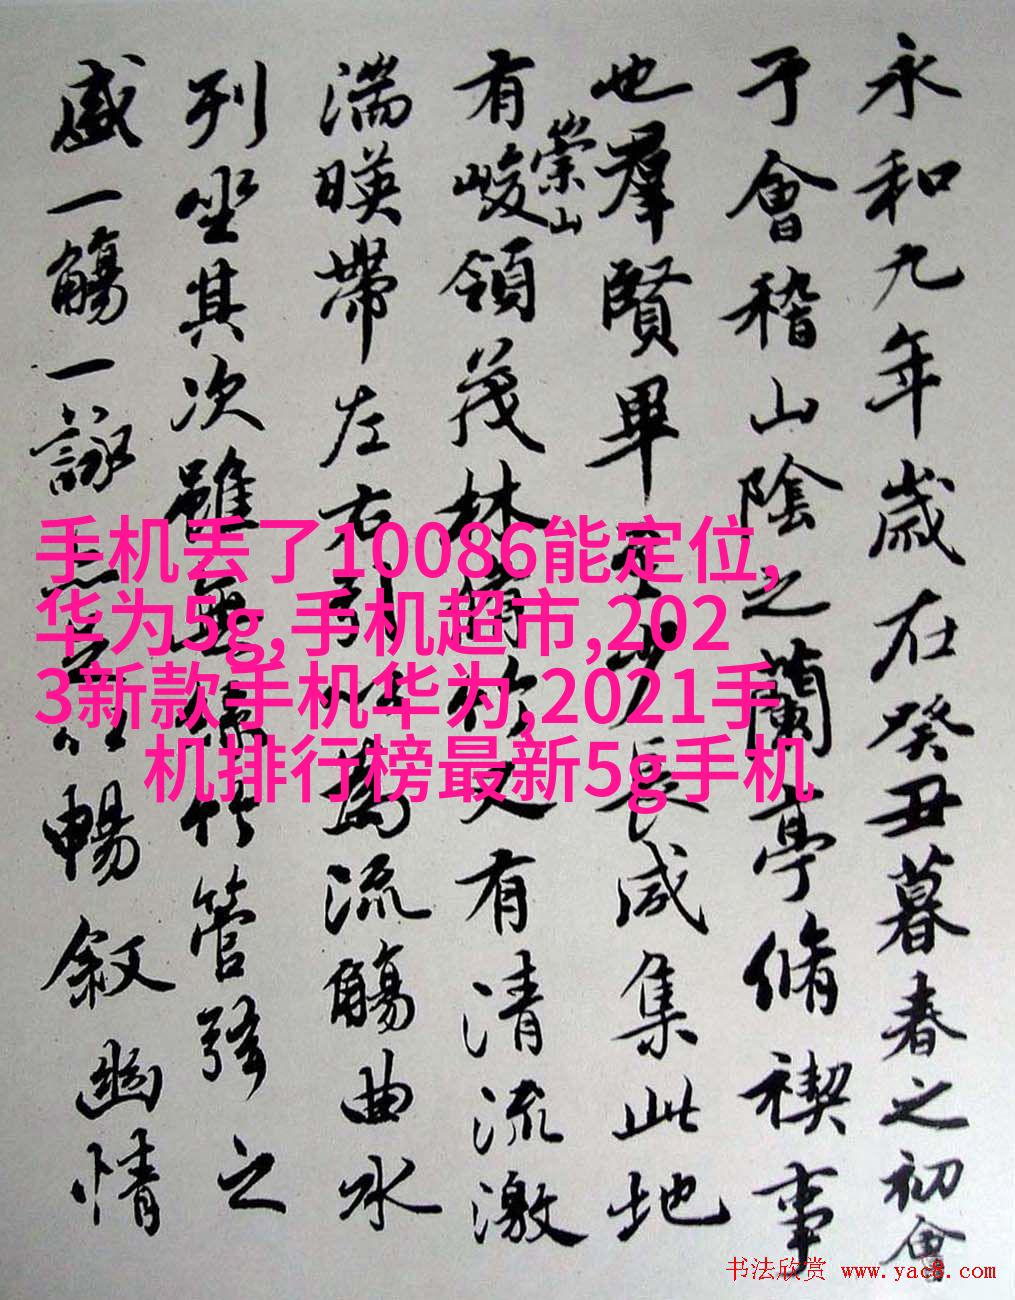 永和九年歲在癸丑暮春之初會
于會稽山陰之蘭亭脩稧事
也羣賢畢至少長咸集此地
有崇山峻領茂林脩竹又有清流激
湍暎帶左右引以為流觴曲水
列坐其次雖無絲竹管弦之
盛一觴一詠亦足以暢敘幽情
手机丢了10086能定位,
华为5g,手机超市,202
3新款手机华为,2021手
机排行榜最新5g手机
书法欣赏 www.yac8.com